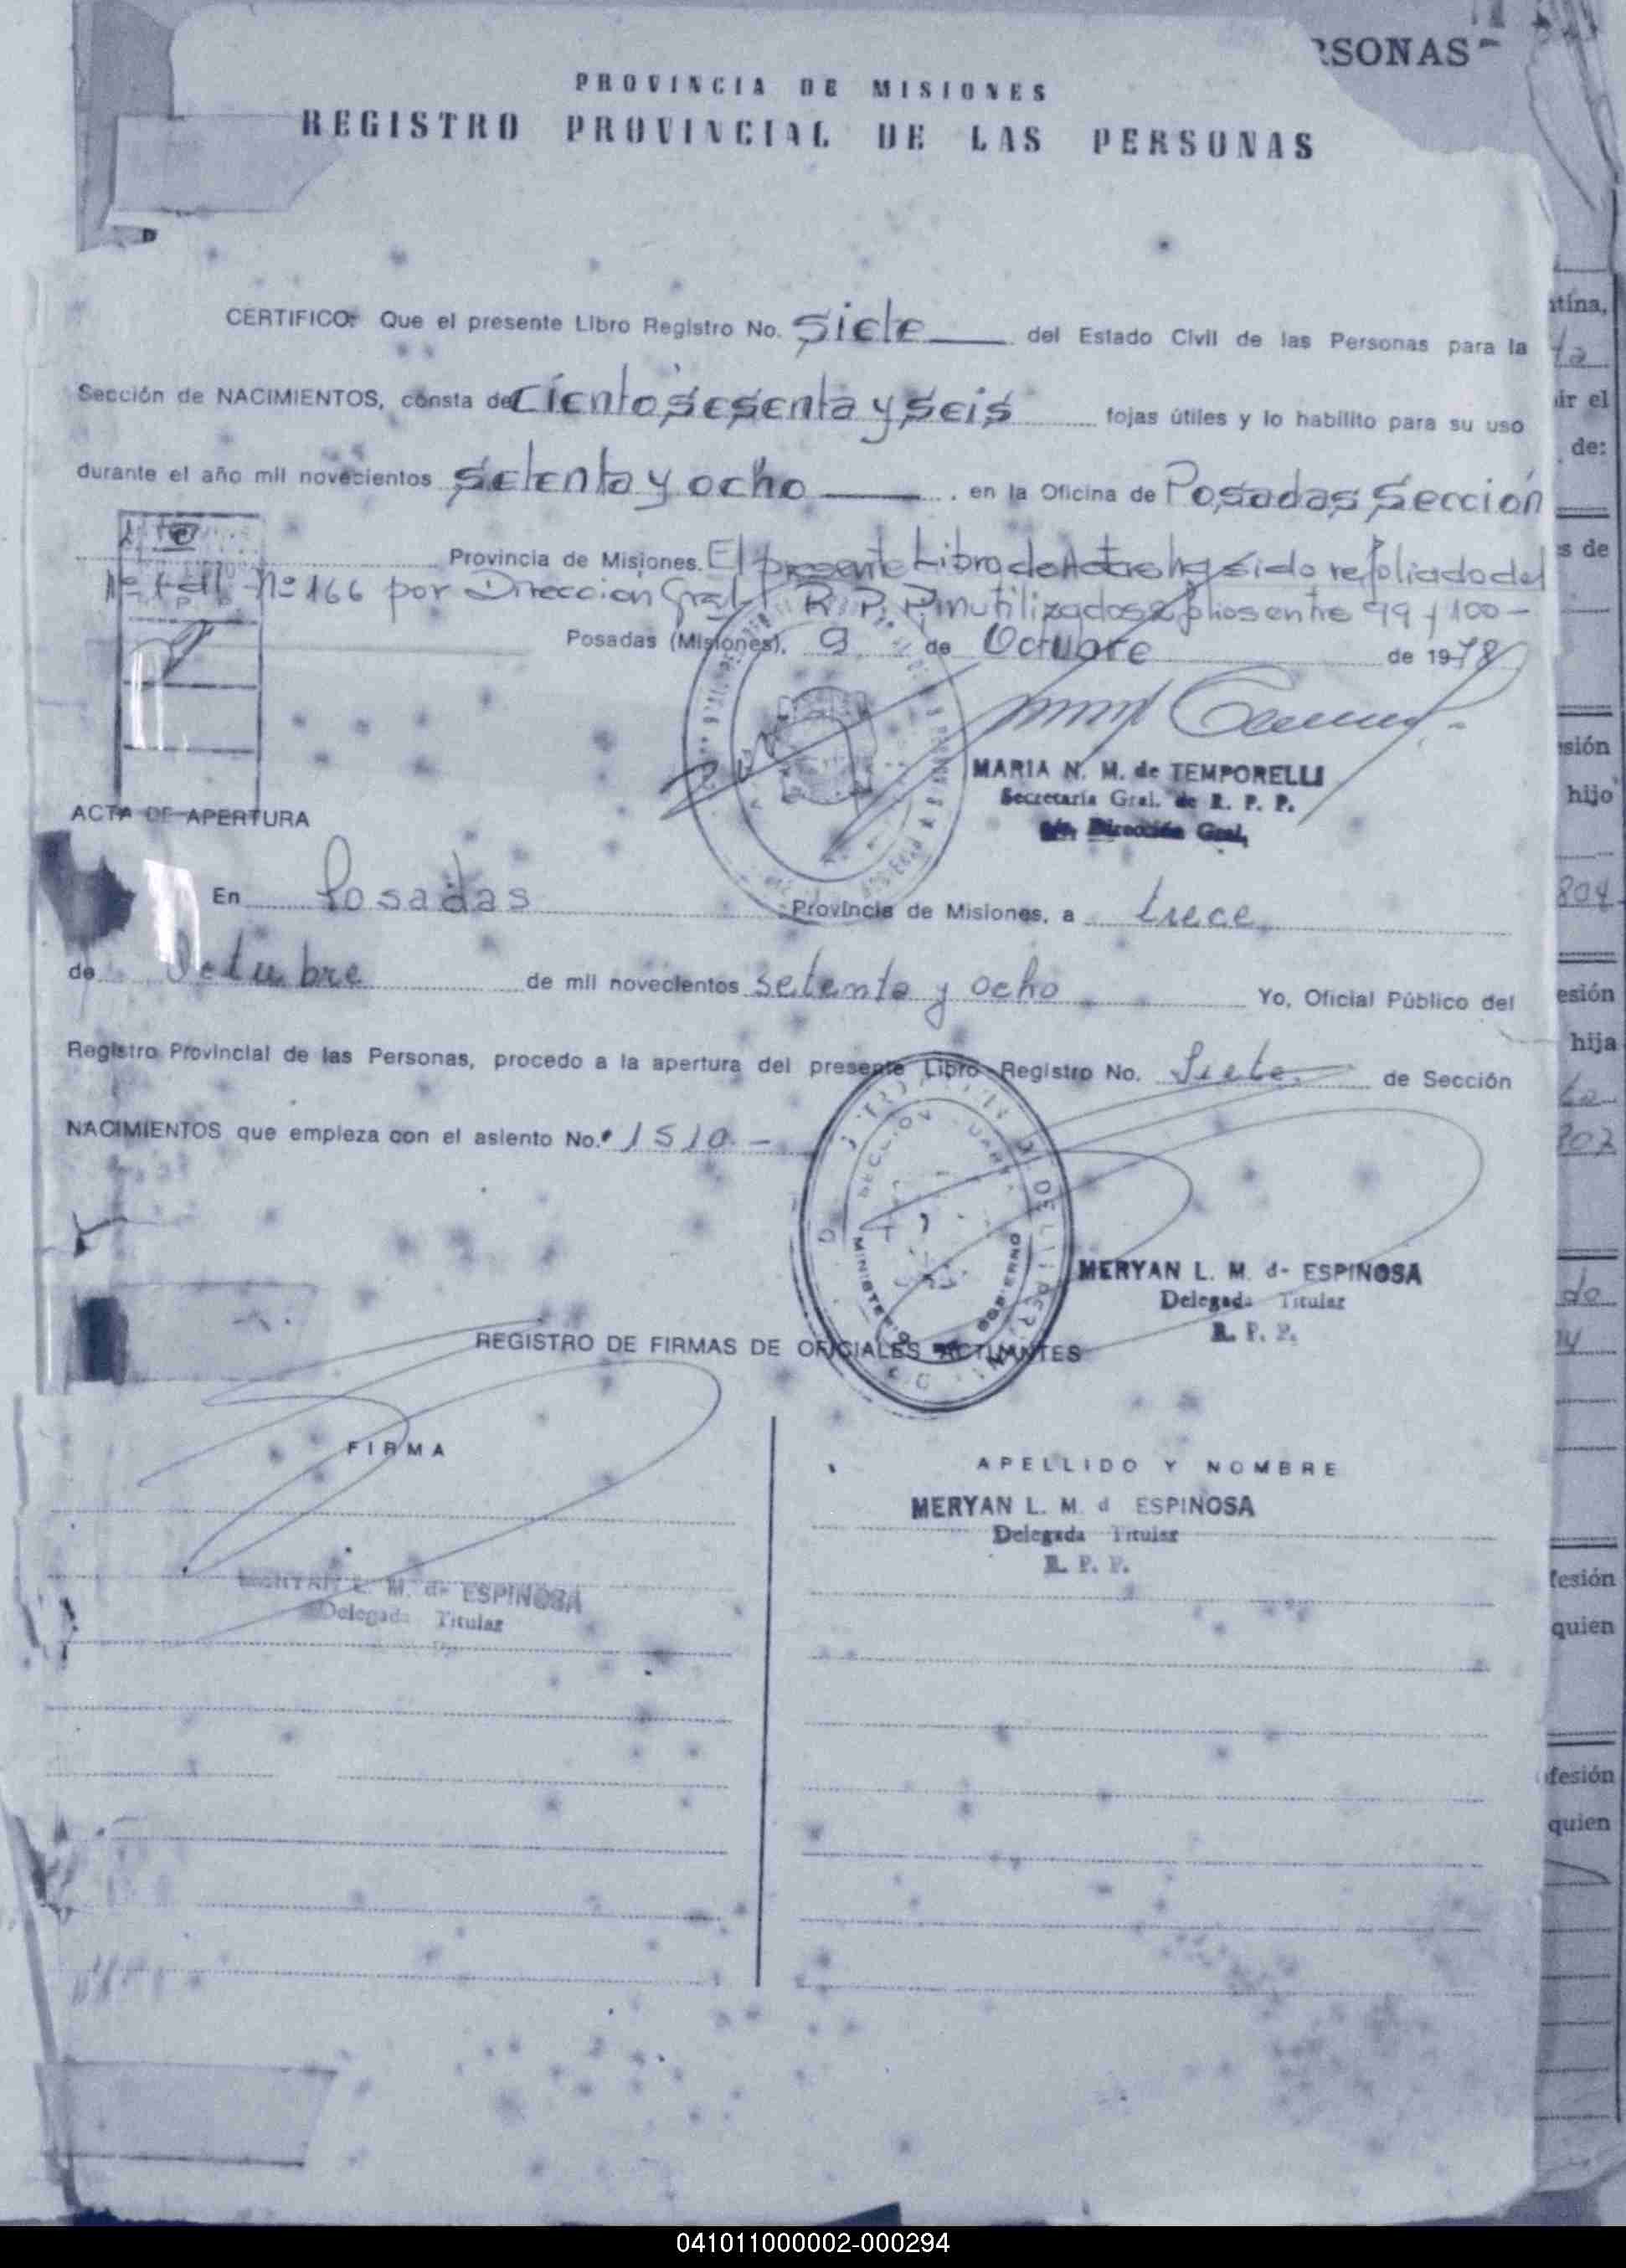 RSONAS
PROVINCIA DE MISIONES
REGISTRO PROVINCIAL DE LAS PERSONAS
CERTIFICO: Que el presente Libro Registro No. Siete del Estado Civil de las Personas para la
Sección de NACIMIENTOS, consta de Ciento Sesenta y Seis fojas útiles y lo habilito para su uso
durante el año mil novecientos Setenta y ocho en la Oficina de Posadas Sección
Provincia de Misiones. El presente Libro de Actas ha sido refoliado del
Nº 1 al Nº 166 por Dirección Gral R. P. P. inutilizados 2 folios entre 99 y 100 -
Posadas (Misiones), 9 de Octubre de 1978
MARIA N. M. de TEMPORELLI
Secretaria Gral. de R. P. P.
Dirección Gral.
ACTA DE APERTURA
En Posadas Provincia de Misiones, a trece
de Octubre de mil novecientos setenta y ocho Yo, Oficial Público del
Registro Provincial de las Personas, procedo a la apertura del presente Libro Registro No. Siete de Sección
NACIMIENTOS que empieza con el asiento No. 1510. -
MINISTERIO DE GOBIERNO
MERYAN L. M. d- ESPINOSA
Delegada Titular
R. P. P.
REGISTRO DE FIRMAS DE OFICIALES ACTUANTES
FIRMA
APELLIDO Y NOMBRE
MERYAN L. M. d ESPINOSA
Delegada Titular
R. P. P.
MERYAN L. M. de ESPINOSA
Delegada Titular
tina,
ir el
de:
s de
sión
hijo
804
esión
hija
202
do
fesión
quien
fesión
quien
041011000002-000294